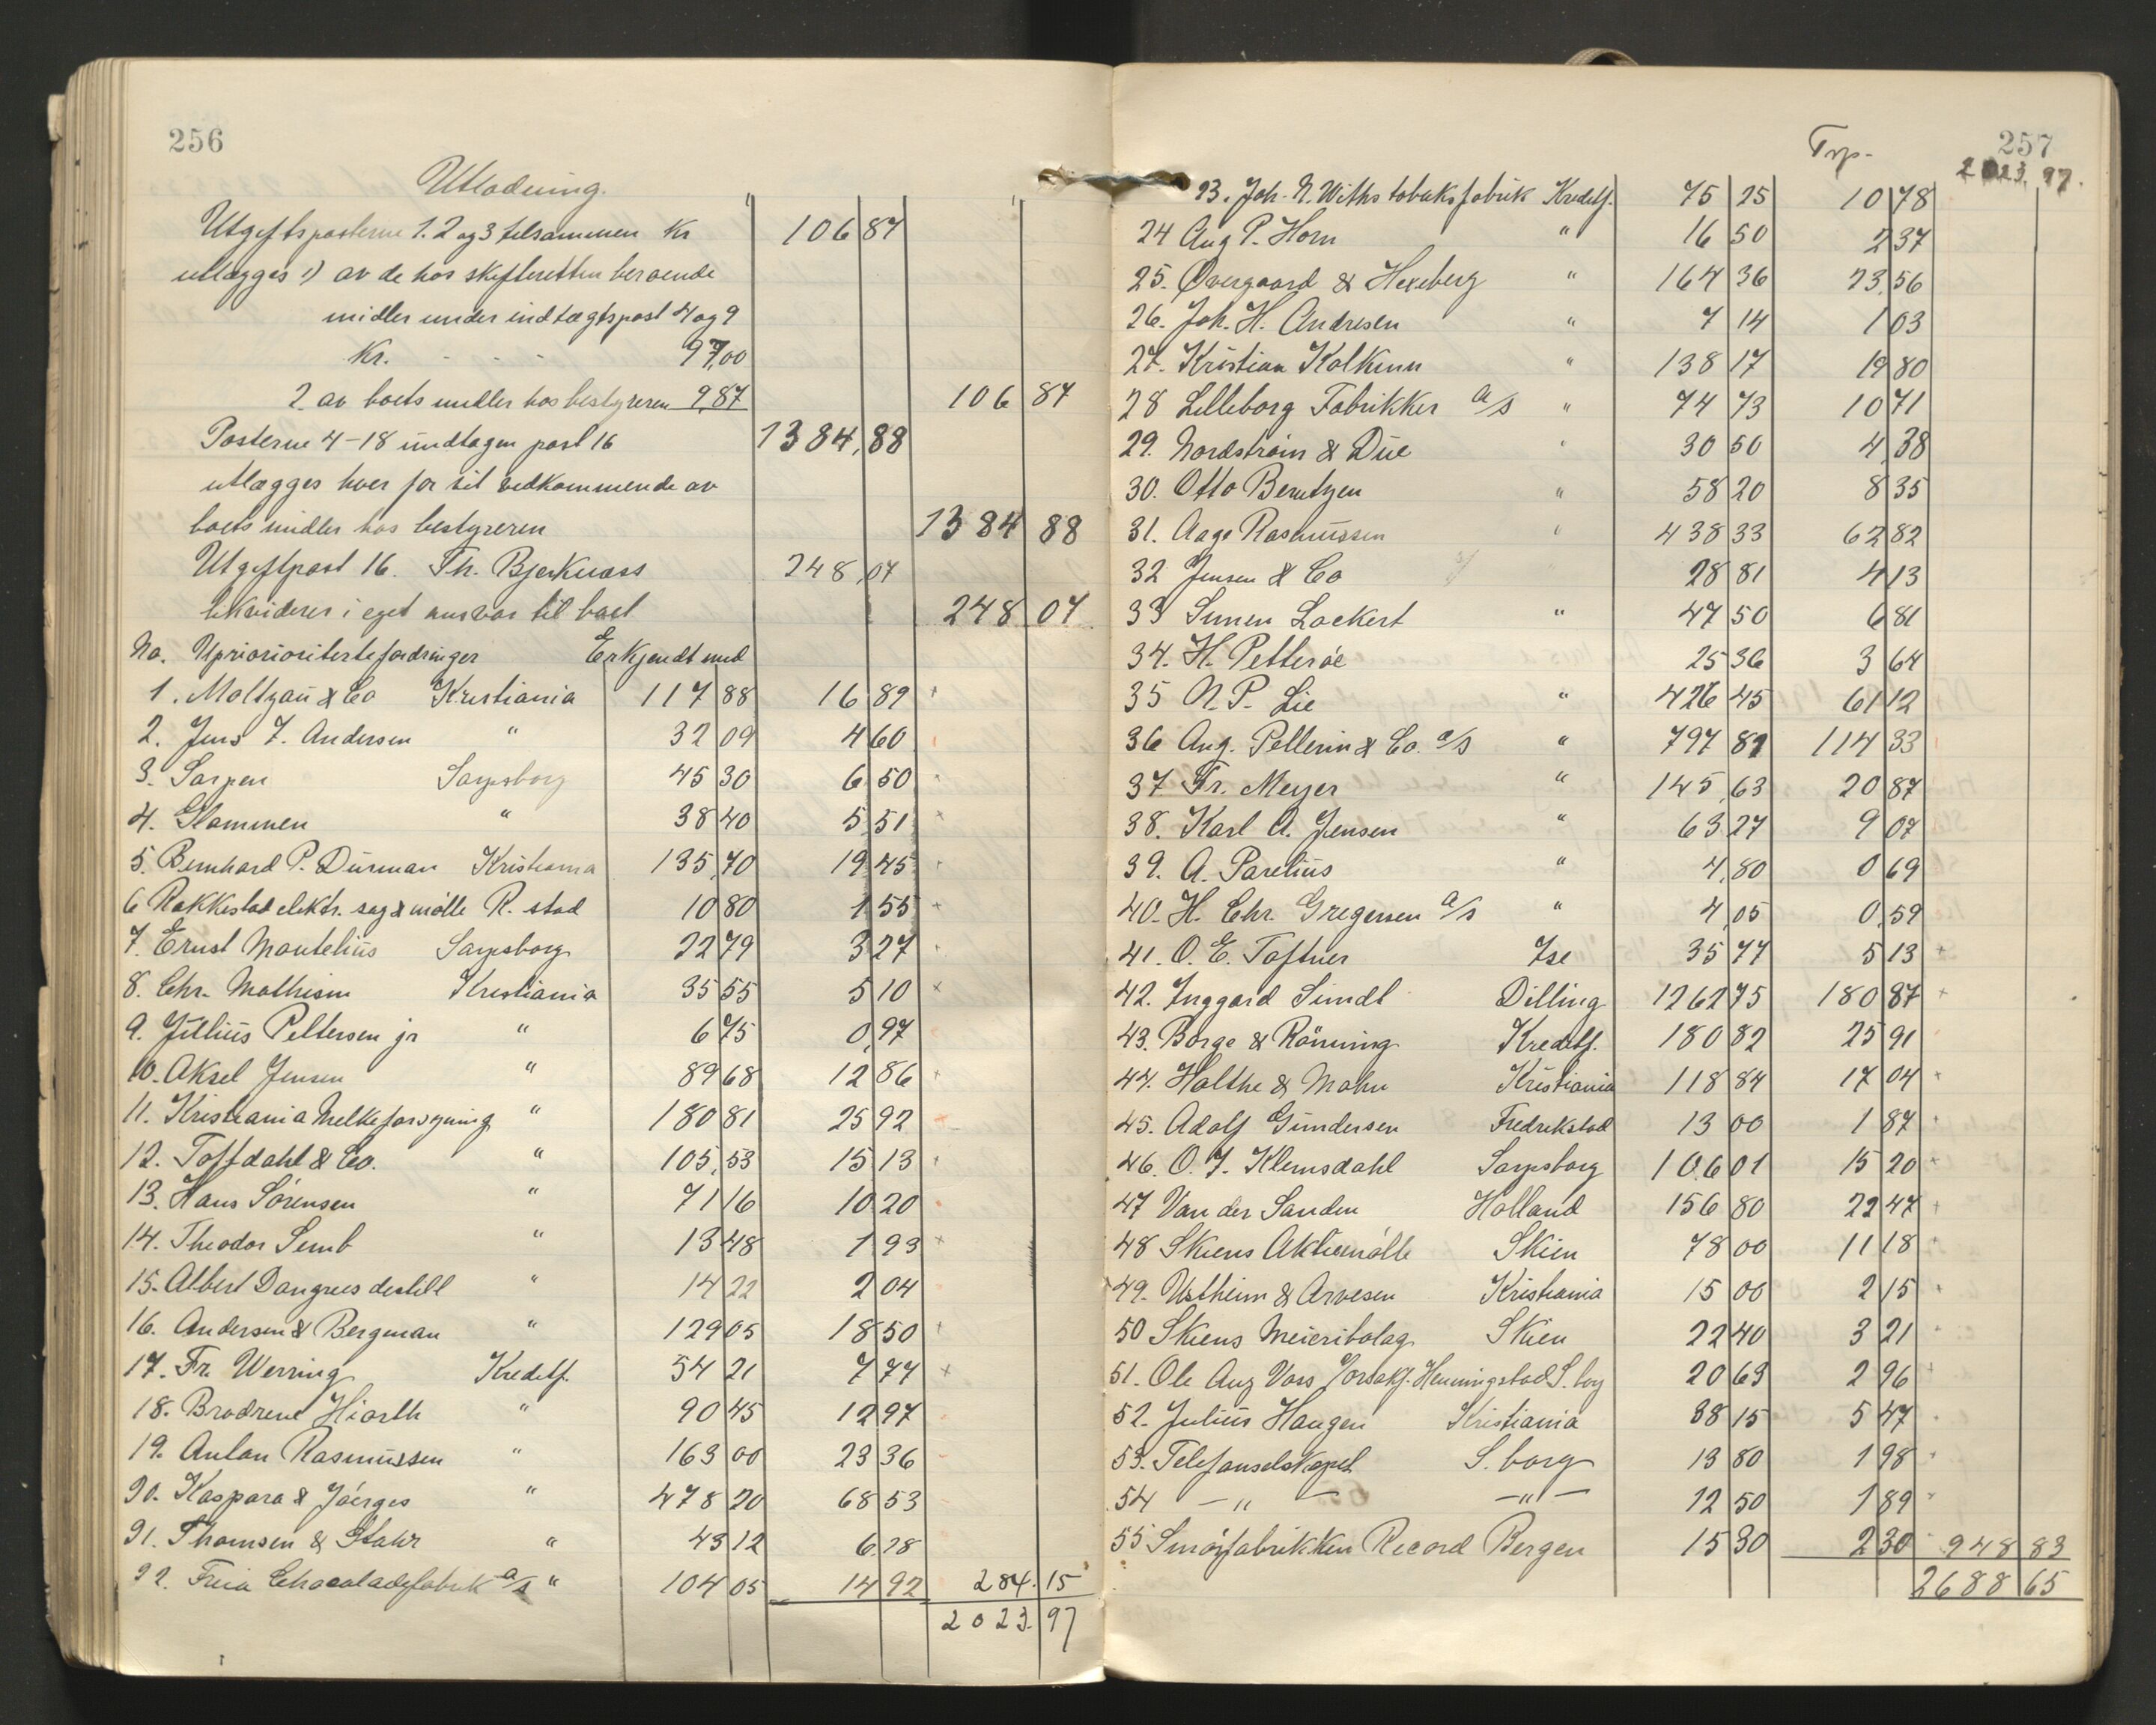 256
Utlodning.
Utgiftsposterne 1. 2 og 3 tilsammen Kr 106 87
utlægges 1) av de hos skifteretten beroende
midler under indtægtspost 4 og 9
Kr. - - - 97,00
2. av boets midler hos bestyreren 9,87 106 87
Posterne 4-18 undtagen post 16 1384,88
utlægges hver for sit vedkommende av
boets midler hos bestyreren 1384 88
Utgiftpost 16. Th. Bjerknæss 248,07
likviderer i eget ansvar til boet 248 07
No. Uprioriorriterte fordringer Erkjendt med
1. Moltzau & Co Kristiania 117 88 16 89
2. Jens F. Andersen " 32 09 4 60
3. Sarpen Sarpsborg 45 30 6 50
4. Glommen " 38 40 5 51
5. Bernhard P. Durman Kristiania 135,70 19 45
6 Rakkestad elektr. sag & mölle R. stad 10 80 1 55
7. Ernst Montelius Sarpsborg 22 79 3 27
8. Chr. Mathisen Kristiania 35 55 5 10
9. Jülius Pettersen jr " 6 75 0,97
10. Aksel Jensen " 89 68 12 86
11. Kristiania Melkeforsyning " 180 81 25 92
12. Toftdahl & Co. " 105,53 15 13
13. Hans Sörensen " 71 16 10 20
14. Theodor Semb " 13 48 1 93
15. Albert Dangrees destill " 14 22 2 04
16. Andersen & Bergman " 129 05 18 50
17. Fr. Werring Kreditf. 54 21 7 77
18. Brødrene Hiorth " 90 45 12 97
19. Anton Rasmussen " 163 00 23 36
20. Kaspara & Jöerges " 478 20 68 53
21. Thomsen & Stahr " 43 12 6,18
22. Freia Chocoladefabrik a/s " 104 05 14 92 284.15
2023.97
257
Trp. 2023.97.
23. Joh. N. Withs tobaksfabrik Kreditf. 75 25 10 78
24 Aug P. Horn " 16 50 2 37
25. Overgaard & Hexeberg " 164 36 23,56
26. Joh. H. Andresen " 7 14 1 03
27. Kristian Kolkinn " 138 17 19 80
28 Lilleborg Fabrikker a/s " 74 73 10 71
29. Nordström & Due " 30 50 4,38
30. Otto Berntzen " 58 20 8 35
31. Aage Rasmussen " 438 33 62 82
32 Jensen & Co 28 81 4 13
33 Simen Lockert " 47 50 6 81
34. H. Petteröe 25 36 3 64
35 N. P. Lie " 426 45 61 12
36 Aug. Pellerin & Co. a/s " 797 81 114 33
37 Fr. Meyer " 145,63 20 87
38. Karl A. Jensen " 63 27 9 07
39. A. Parelius " 4,80 0 69
40. H. Chr. Gregersen a/s " 4,05 0,59
41. O. E. Toftner Ise 35 77 5 13
42. Inggard Sundt Dilling 1262 75 180 87
43. Borge & Rönning Kreditf. 180 82 25 91
44. Holthe & Mohn Kristiania 118 84 17 04
45. Adolf Gundersen Fredrikstad 13 00 1 87
46. O. J. Klemsdahl Sarpsborg 106 01 15 20
47 Van der Sanden Holland 156 80 22 47
48 Skiens Aktiemölle Skien 78 00 11 18
49. Ustheim & Arvesen Kristiania 15 00 2 15
50 Skiens Meieribolag Skien 22 40 3 21
51. Ole Aug Voss Jorsakf. Henningstad S. borg 20 69 2 96
52. Julius Haugen Kristiania 38 15 5 47
53. Telefonselskapet S. borg 13 80 1 98
54 — " — — " — 12 50 1 89
55 Smörfabrikken Record Bergen 15 30 2 30 948 83
2688 65